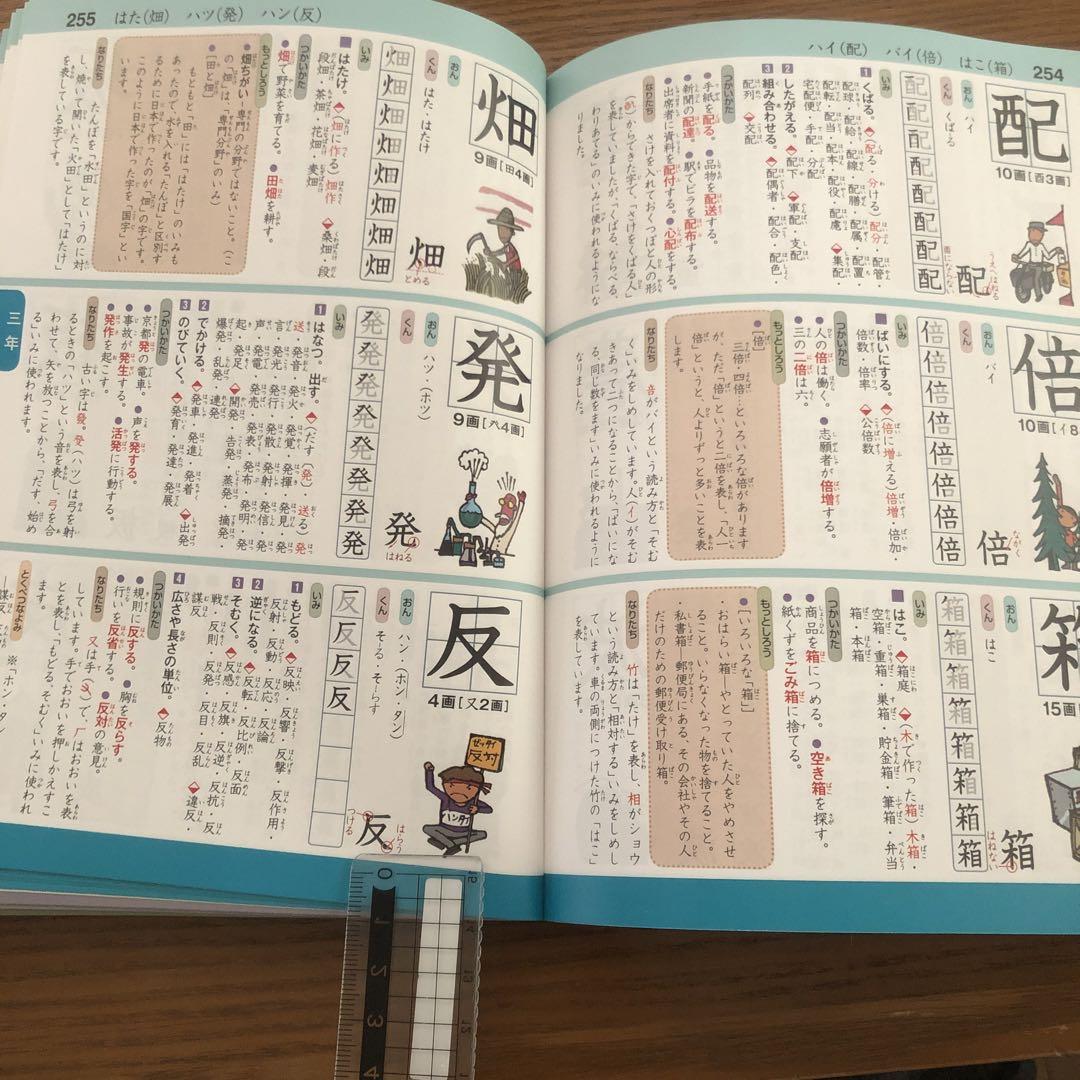 ハイ(配) バイ(倍) はこ(箱) 254
配
10画[酉3画]
おん
ハイ
くん
くばる
配配配配配配配配
配
いみ
1 くばる。
配球・配給・配線・配膳・配属・配置
配転・配当・配本・配役・配慮・集配
宅配便・手配・分配
2 したがえる。 配下 軍配・支配
3 組み合わせる。 配偶者・配合・配色・
配列 交配
つかいかた
●手紙を配る。 ●品物を配送する。
●新聞の配達。 ●駅でビラを配布する。
●出席者に資料を配付する。 ●心配をする。
なりたち
さけを入れておくつぼと人の形
からできた字で、「さけをくばる人」
を表していましたが、「くばる、ならべる、
わりあてる」のいみに使われるようにな
りました。
倍
おん
バイ
くん
倍倍倍倍倍倍倍
倍
ながく
いみ
ばいにする。 (倍に増える)倍増・倍加・
倍数・倍率 公倍数
つかいかた
●人の倍は働く。 ●志願者が倍増する。
●三の二倍は六。
もっとしろう
[倍]
三倍・四倍…といろいろな倍があります
が、ただ「倍」というと二倍を表し、「人一
倍」というと、人よりずっと多いことを表
します。
なりたち
音がバイという読み方と「そむ
く」いみをしめしています。人(イ)がそむ
きあって二つになることから、「ばいにな
る、同じ数をます」いみに使われるように
なりました。
箱
15画
おん
くん
はこ
箱箱箱箱箱箱箱
箱
はねない
いみ
はこ。 箱庭 (木で作った箱)木箱・
空箱・重箱・巣箱・貯金箱・筆箱・弁当
箱・本箱
つかいかた
●商品を箱につめる。 ●空き箱を探す。
●紙くずをごみ箱に捨てる。
もっとしろう
[いろいろな「箱」]
おはらい箱―やとっていた人をやめさせ
ること。いらなくなった物を捨てること。
私書箱―郵便局にある、その会社やその人
だけのための郵便受け取り箱。
なりたち
竹は「たけ」を表し、相がショウ
という読み方と「相対する」いみをしめし
ています。車の両側につけた竹の「はこ」
を表しています。
255 はた(畑) ハツ(発) ハン(反)
畑
9画[田4画]
おん
くん
はた・はたけ
畑畑畑畑畑畑畑畑
畑
とめる
いみ
はたけ。 (畑に作る)畑作 桑畑・段
段畑・茶畑・花畑・麦畑
つかいかた
●畑で野菜を育てる。 ●田畑を耕す。
もっとしろう
●畑ちがい―専門の分野ではないこと。(こ
の「畑」は、「専門分野」のいみ)
[田と畑]
もともと「田」には「はたけ」のいみも
あったので、水を入れる「たんぼ」と区別す
るために日本で作ったのが「畑」の字です。
このように日本で作った字を「国字」とい
います。
なりたち
たんぼを「水田」というのに対
し、焼いて開いた「火田」として「はたけ」
を表している字です。
三年
発
9画[癶4画]
おん
ハツ・ホツ
くん
発発発発発発発発
発
はねる
いみ
1 はなつ。出す。 (だす(発)・送る)発
送・発音・発火・発覚・発揮・発見・発
言・発光・発行・発散・発射・発信・発
声・発電・発売・発表・発布・発明・発
起・発足 開発・告発・蒸発・摘発・
爆発・乱発・連発
2 でかける。 発車・発進・発着 出発
3 のびていく。 発育・発達・発展
つかいかた
●京都発の電車。 ●声を発する。
●事故が発生する。 ●活発に行動する。
●発作を起こす。
なりたち
古い字は發。癹(ハツ)は弓を射
るときの「ハツ」という音を表し、弓を合
わせて、矢を放つことから、「だす、始め
る」いみに使われます。
反
4画[又2画]
おん
ハン・ホン・タン
くん
そーる・そーらす
反反反反
反
はらう
つける
ゼッタイ
反対
ハンタイ
いみ
1 もどる。 反映・反響・反撃・反作用・
反射・反動・反応・反論
2 逆になる。 反転・反比例・反面
3 そむく。 反感・反旗・反逆・反抗・反
戦・反則・反発・反目・反乱 違反・
謀反
4 広さや長さの単位。 反物
つかいかた
●規則に反する。 ●胸を反らす。
●行いを反省する。 ●反対の意見。
なりたち
又は手で、厂はおおいを表
しています。手でおおいを押しかえすこ
とを表し、「もどる、そむく」いみに使われ
ます。
とくべつなよみ
謀反
0 1 2 3 4